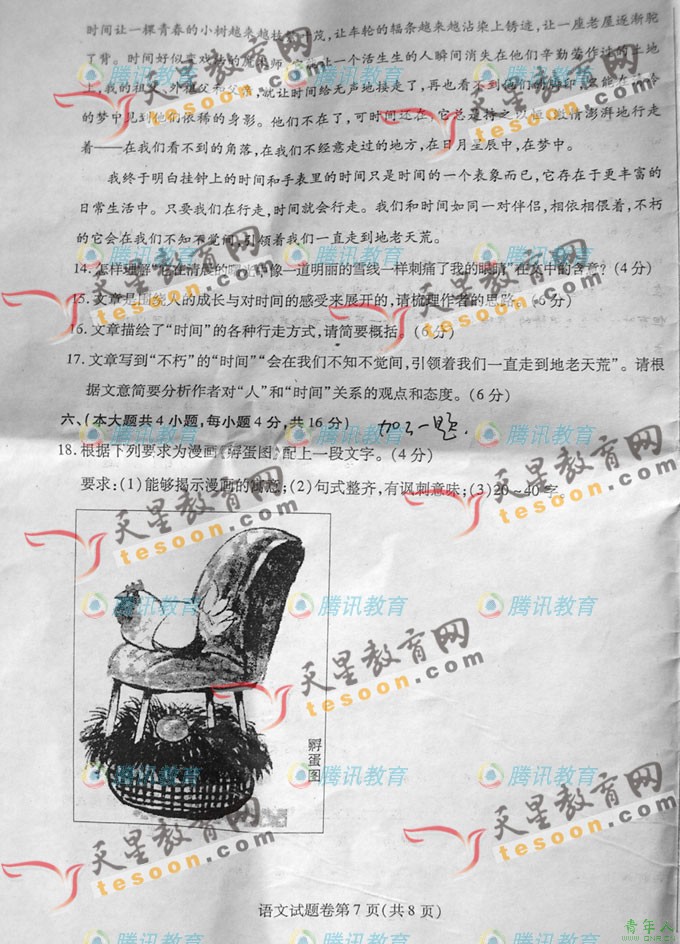 时间让一棵青春的小树越来越枝 茂,让车轮的辐条越来越沾染上锈迹,让一座老屋逐渐驼
了背。时间好似变戏法的魔术师,它能让一个活生生的人瞬间消失在他们辛勤劳作过的土地
上,我的祖父、外祖父和父亲,就让时间给无声地接走了,再也看不到他们的脚印,只能在
的梦中见到他们依稀的身影。他们不在了,可时间还在,它总是持之以恒、激情澎湃地行走
着——在我们看不到的角落,在我们不经意走过的地方,在日月星辰中,在梦中。
我终于明白挂钟上的时间和手表里的时间只是时间的一个表象而已,它存在于更丰富的
日常生活中。只要我们在行走,时间就会行走。我们和时间如同一对伴侣,相依相偎着,不朽
的它会在我们不知不觉间,引领着我们一直走到地老天荒。
14. 怎样理解“它在清晨的 像一道明丽的雪线一样刺痛了我的眼睛”在文中的含意?(4分)
15. 文章是围绕人的成长与对时间的感受来展开的,请梳理作者的思路。(6分)
16. 文章描绘了“时间”的各种行走方式,请简要概括。(6分)
17. 文章写到“不朽”的“时间”“会在我们不知不觉间,引领着我们一直走到地老天荒”。请根
据文意简要分析作者对“人”和“时间”关系的观点和态度。(6分)
六、(本大题共4小题,每小题4分,共16分)
18. 根据下列要求为漫画《孵蛋图》配上一段文字。(4分)
要求:(1)能够揭示漫画的寓意;(2)句式整齐,有讽刺意味;(3)20~40字。
孵蛋图
语文试题卷第7页(共8页)
天星教育网
tesoon.com
腾讯教育
青年人